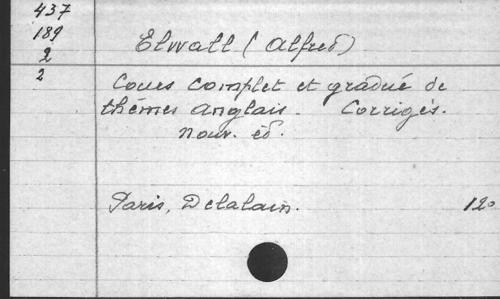 437
189
2
2
Elwall (Alfred)
Cours complet et gradué de
thèmes anglais. Corrigés.
nouv. éd.
Paris, Delalain. 12º